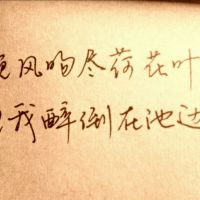 晚风吻尽荷花叶
我醉倒在池边